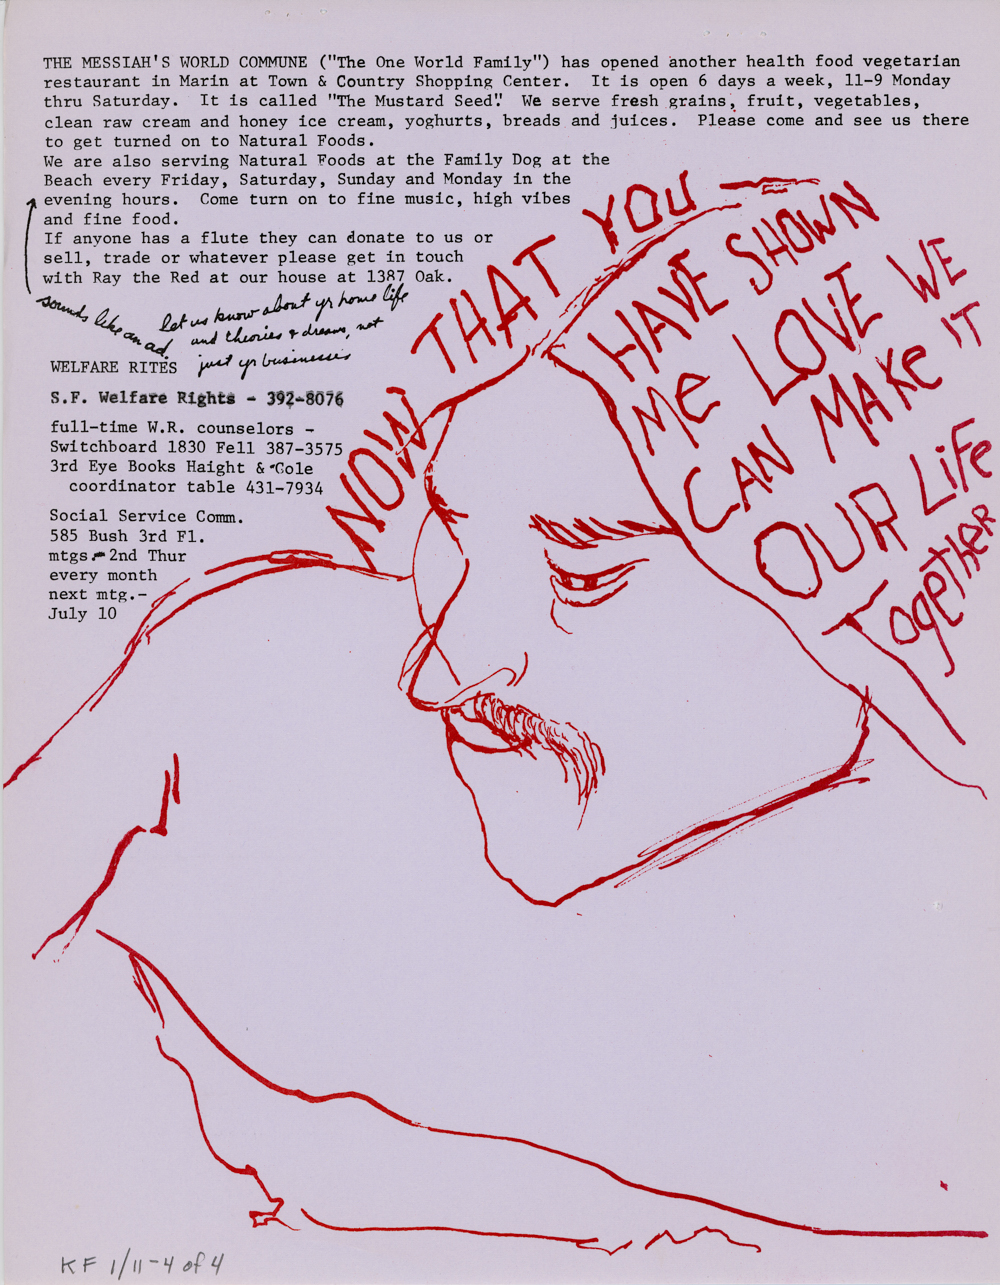 THE MESSIAH'S WORLD COMMUNE ("The One World Family") has opened another health food vegetarian
restaurant in Marin at Town & Country Shopping Center.  It is open 6 days a week, 11-9 Monday
thru Saturday.  It is called "The Mustard Seed".  We serve fresh grains, fruit, vegetables,
clean raw cream and honey ice cream, yoghurts, breads and juices.  Please come and see us there
to get turned on to Natural Foods.
We are also serving Natural Foods at the Family Dog at the
Beach every Friday, Saturday, Sunday and Monday in the
evening hours.  Come turn on to fine music, high vibes
and fine food.
If anyone has a flute they can donate to us or
sell, trade or whatever please get in touch
with Ray the Red at our house at 1387 Oak.
sounds like an ad.
let us know about yr home life
and theories & dreams, not
just yr businesses
WELFARE RITES
S.F. Welfare Rights - 392-8076
full-time W.R. counselors -
Switchboard 1830 Fell 387-3575
3rd Eye Books Haight & Cole
coordinator table 431-7934
Social Service Comm.
585 Bush 3rd Fl.
mtgs.- 2nd Thur
every month
next mtg.-
July 10
NOW THAT YOU
HAVE SHOWN
Me LOVE WE
CAN MAKe IT
OUR LiFe
TogetHeR
KF 1/11-4 of 4